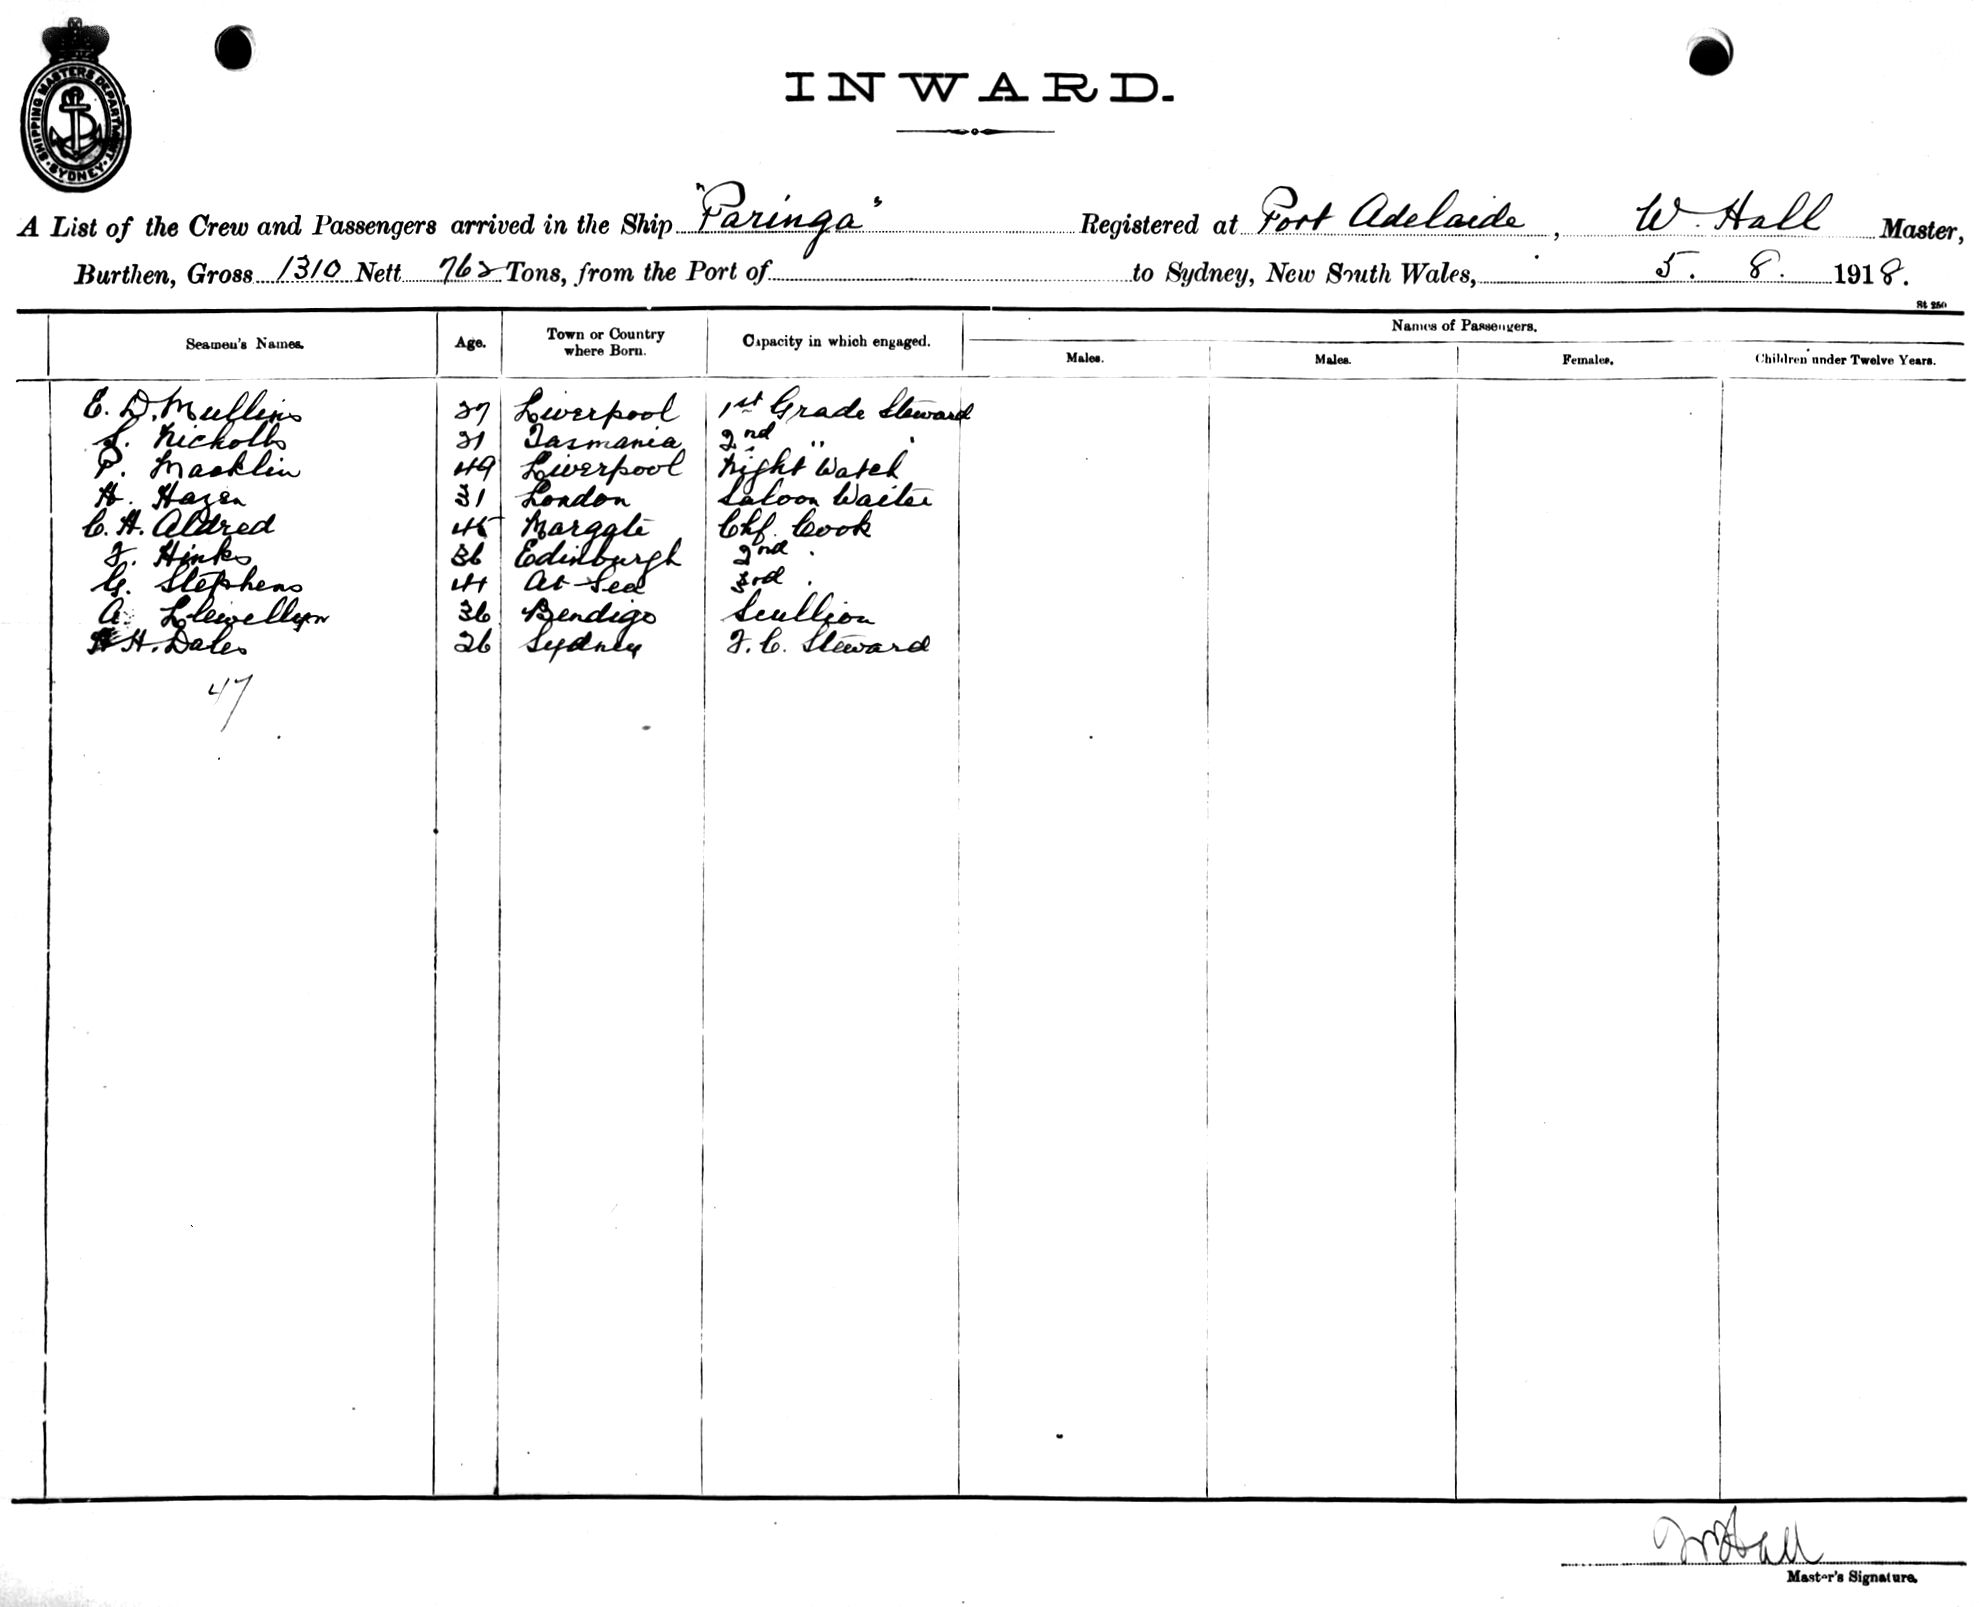 SHIPPING MASTERS DEPARTMENT · SYDNEY ·
INWARD.
A List of the Crew and Passengers arrived in the Ship "Paringa" Registered at Port Adelaide, W. Hall Master,
Burthen, Gross 1310 Nett 762 Tons, from the Port of to Sydney, New South Wales, 5. 8. 1918.
St 250
Seamen's Names. Age. Town or Country where Born. Capacity in which engaged. Names of Passengers.
Males. Males. Females. Children under Twelve Years.
E. D. Mullins 27 Liverpool 1st Grade Steward
S. Nicholls 21 Tasmania 2nd " "
P. Macklin 49 Liverpool Night Watch
H. Hazen 31 London Saloon Waiter
C. H. Aldred 45 Margate Chf. Cook
F. Hinks 36 Edinburgh 2nd "
G. Stephens 41 At Sea 3rd "
A. Llewellyn 36 Bendigo Scullion
H. Dales 26 Sydney F. C. Steward
47
W Hall
Master's Signature.